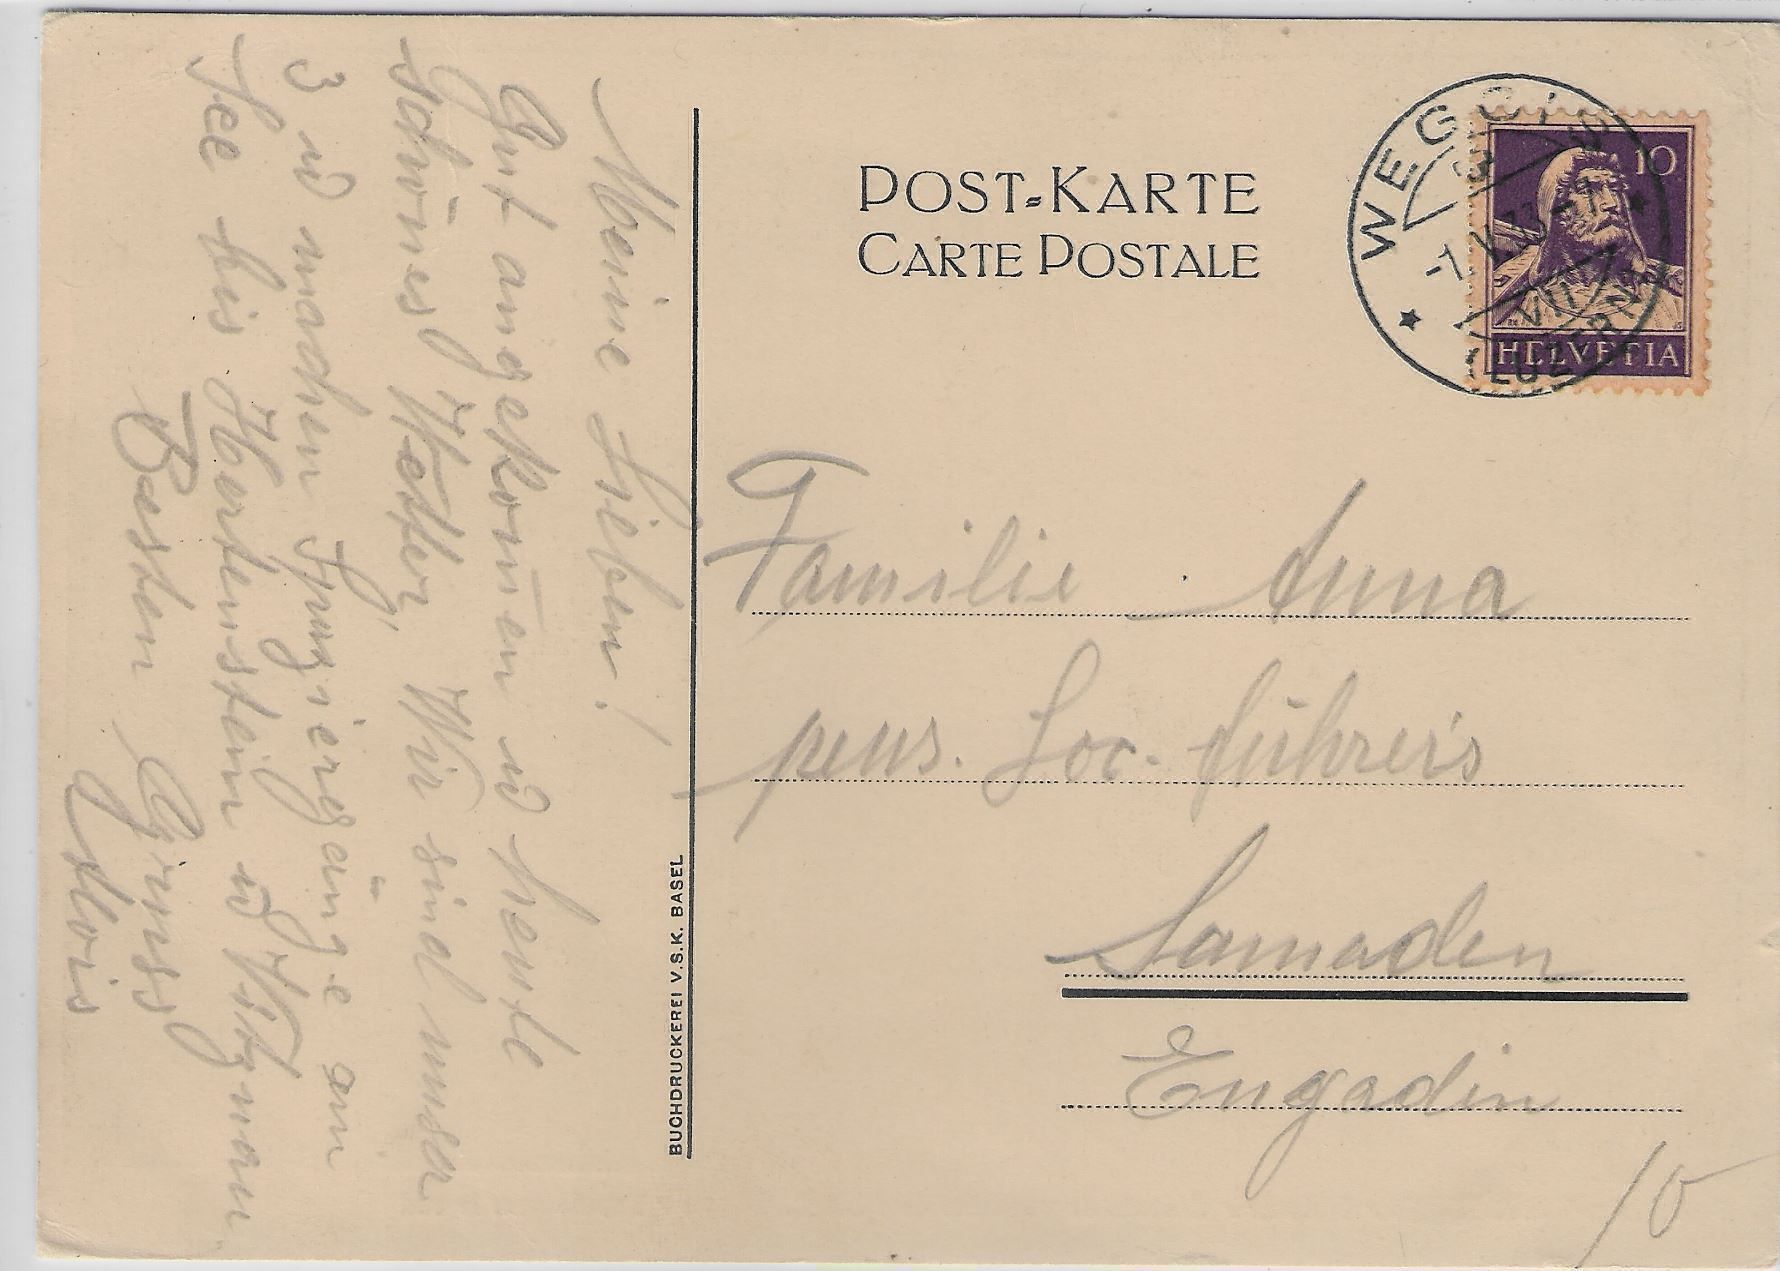 Meine Lieben!
Gut angekom̄en u heute
schönes Wetter, Wir sind unser
3 u machen Spaziergänge am
See bis Hertenstein u Vitznau
Besten Gruss
Alois
BUCHDRUCKEREI V.S.K. BASEL
POST-KARTE
CARTE POSTALE
WEGGIS
-1.V.33-
VII
(LUZERN)
10
HELVETIA
Familie Anna
pens. Loc. führers
Samaden
Engadin
10